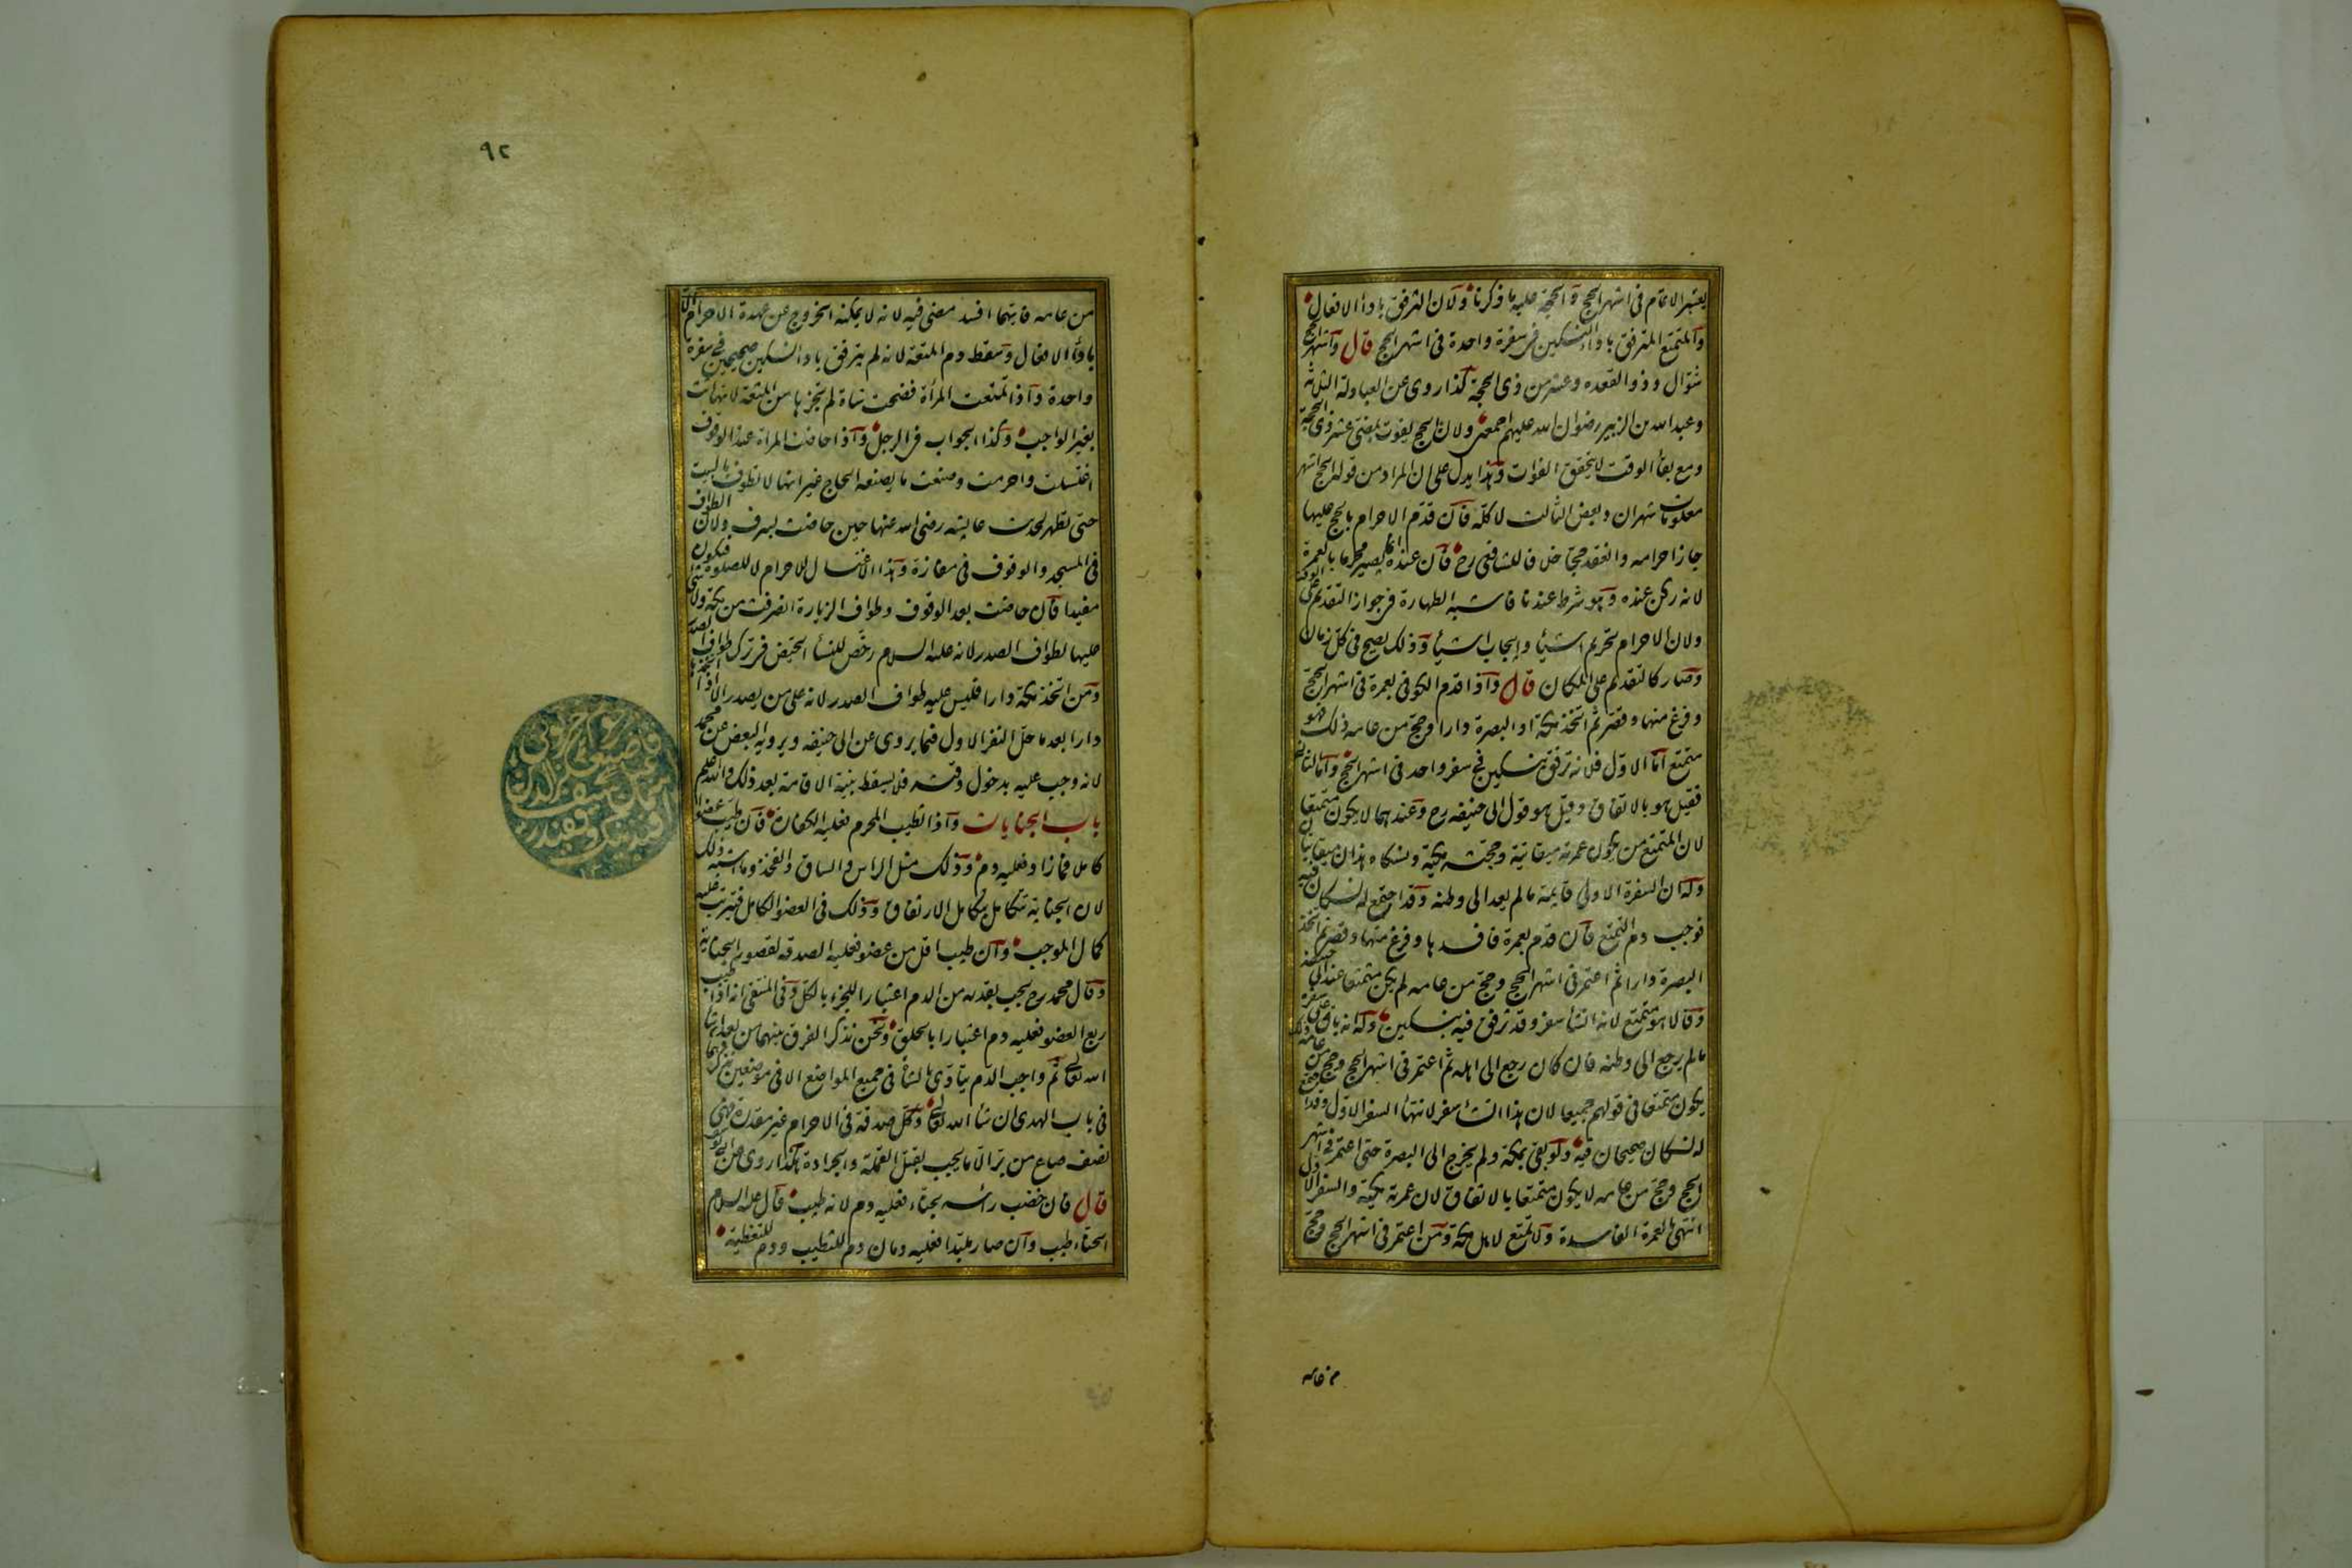 يعتبر الاتمام فى اشهر الحج والحجة عليه ما ذكرنا ولان الترفق باداء الافعال
والمتمتع المترفق باداء النسكين فى سفرة واحدة فى اشهر الحج قال واشهر الحج
شوال وذوالقعده وعشر من ذى الحجة كذا روى عن العبادلة الثلثة
وعبدالله بن الزبير رضوان الله عليهم اجمعين ولان الحج يفوت بمضى عشر ذى الحجة
ومع بقاء الوقت لا يتحقق الفوات وهذا يدل على ان المراد من قوله الحج اشهر
معلومات شهران وبعض الثالث لا كله فان قدم الاحرام بالحج عليها
جاز احرامه وانعقد حجا خلافا للشافعى رح فان عنده يصير محرما بالعمرة
لانه ركن عنده وهو شرط عندنا فاشبه الطهارة فى جواز التقديم على الوقت
ولان الاحرام تحريم اشياء وايجاب اشياء وذلك يصح فى كل زمان
وصار كالتقديم على المكان قال واذا قدم الكوفى بعمرة فى اشهر الحج
وفرغ منها وقصر ثم اتخذ مكة او البصرة دارا وحج من عامه ذلك فهو
متمتع اما الاول فلانه ترفق بنسكين فى سفر واحد فى اشهر الحج واما الثانى
فقيل هو بالاتفاق وقيل هو قول ابى حنيفه رح وعندهما لا يكون متمتعا
لان المتمتع من يكون عمرته ميقاتية وحجته مكية ونسكاه هذان ميقاتيان
وله ان السفرة الاولى قايمة مالم يعد الى وطنه وقد اجتمع له نسكان فيه
فوجب دم التمتع فان قدم بعمرة فافسدها وفرغ منها وقصر ثم اتخذ
البصرة دارا ثم اعتمر فى اشهر الحج وحج من عامه لم يكن متمتعا عند ابى حنيفه
وقالا هو متمتع لانه انشاء سفر وقد ترفق فيه بنسكين وله انه باق على سفره
مالم يرجع الى وطنه فان كان رجع الى اهله ثم اعتمر فى اشهر الحج وحج من عامه ذلك
يكون متمتعا فى قولهم جميعا لان هذا انشاء سفر لانتهاء السفر الاول وقد اجتمع
له نسكان صحيحان فيه ولو بقى بمكة ولم يخرج الى البصرة حتى اعتمر فى اشهر
الحج وحج من عامه لا يكون متمتعا بالاتفاق لان عمرته مكية والسفر الاول
انتهى بالعمرة الفاسدة ولا تمتع لاهل مكة ومن اعتمر فى اشهر الحج وحج
من عامه
٩٢
من عامه فايتهما افسد مضى فيه لانه لا يمكنه الخروج عن عهدة الاحرام الا
باداء الافعال وسقط دم المتعة لانه لم يترفق باداء النسكين صحيحين فى سفرة
واحدة واذا تمتعت المرأة فضحت بشاة لم يجزها من المتعة لانها اتت
بغير الواجب وكذا الجواب فى الرجل واذا حاضت المراة عند الوقوف
اغتسلت واحرمت وصنعت ما يصنعه الحاج غير انها لا تطوف بالبيت
حتى تطهر لحديث عايشه رضى الله عنها حين حاضت بسرف ولان الطواف
فى المسجد والوقوف فى مفازة وهذا الاغتسال للاحرام لا للصلوة فيكون
مفيدا فان حاضت بعد الوقوف وطواف الزيارة انصرفت من مكة ولا شئ
عليها لطواف الصدر لانه عليه السلام رخص للنساء الحيض فى ترك طواف الصدر
ومن اتخذ مكة دارا فليس عليه طواف الصدر لانه على من يصدر الا اذا اتخذها
دارا بعد ما حل النفر الاول فيما يروى عن ابى حنيفه ويرويه البعض عن محمد
لانه وجب عليه بدخول وقته فلا يسقط بنية الاقامة بعد ذلك والله اعلم
باب الجنايات واذا تطيب المحرم فعليه الكفارة فان طيب عضوا
كاملا فمازاد فعليه دم وذلك مثل الراس والساق والفخذ وما اشبه ذلك
لان الجناية تتكامل بتكامل الارتفاق وذلك فى العضو الكامل فيترتب عليه
كمال الموجب وان طيب اقل من عضو فعليه الصدقه لقصور الجناية
وقال محمد رح يجب بقدره من الدم اعتبارا للجزء بالكل وفى المنتقى انه اذا طيب
ربع العضو فعليه دم اعتبارا بالحلق ونحن نذكر الفرق بينهما من بعد ان شا
الله تعالى ثم واجب الدم يتادى بالشاة فى جميع المواضع الا فى موضعين نذكرهما
فى باب الهدى ان شاء الله تعالى وكل صدقة فى الاحرام غير مقدرة فهى
نصف صاع من بر الا ما يجب بقتل القملة والجرادة هكذا روى عن ابى يوسف
قال فان خضب راسه بحناء فعليه دم لانه طيب قال عليه السلام
الحناء طيب وان صار ملبدا فعليه دمان دم للتطيب ودم للتغطية